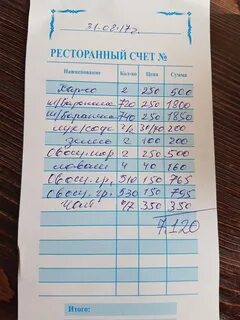 31.08.17 г.
РЕСТОРАННЫЙ СЧЕТ №
Наименование Кол-во Цена Сумма
Харчо 2 250 500
ш/баранина 720 250 1800
ш/баранина 740 250 1850
лук/соус 2/2 30/70 200
2 100 200
Овощ. мор 2 250 500
лаваш 4 40 160
Овощ. гр. 510 150 765
Овощ. гр. 530 150 795
Чай 1/7 350 350
7.120
Итого: